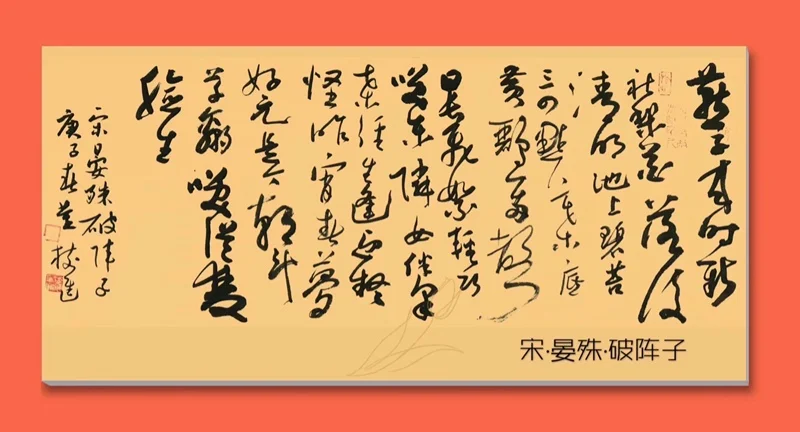 燕子来时新
社梨花落後
清明池上碧苔
三四點葉底
黄鸝一两聲
日長飛絮轻巧
笑东隣女伴采
桑徑里逢迎疑
怪昨宵春梦
好元是今朝斗
草赢笑從雙
臉生
宋晏殊破陣子
庚子春
宋·晏殊·破阵子